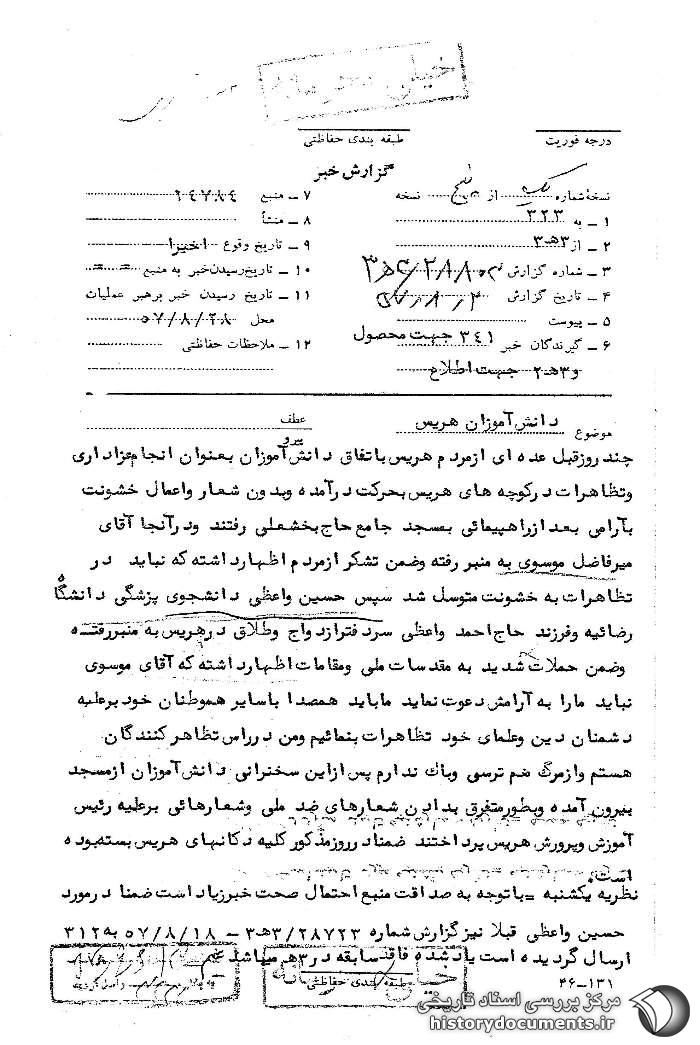 خیلی محرمانه
درجه فوریت
طبقه بندی حفاظتی
گزارش خبر
نسخه شماره یک از پنج نسخه
۱ - به ۳۲۳
۲ - از ۳هـ۳
۳ - شماره گزارش
۴ - تاریخ گزارش
۵ - پیوست
۶ - گیرندگان خبر ۳۴۱ جهت محصول
و۳هـ۲ جهت اطلاع
۷ - منبع ۲۴۷۸۴
۸ - منشأ
۹ - تاریخ وقوع اخیرا
۱۰ - تاریخ رسیدن خبر به منبع = =
۱۱ - تاریخ رسیدن خبر برهبر عملیات
محل ۵۷/۸/۲۸
۱۲ - ملاحظات حفاظتی
موضوع دانش آموزان هریس
عطف
پیرو
چند روز قبل عده ای از مردم هریس باتفاق دانش آموزان بعنوان انجام عزاداری
وتظاهرات در کوچه های هریس بحرکت درآمده وبدون شعار واعمال خشونت
بآرامی بعد از راهپیمائی بمسجد جامع حاج بخشعلی رفتند ودر آنجا آقای
میرفاضل موسوی به منبر رفته وضمن تشکر از مردم اظهار داشته که نباید در
تظاهرات به خشونت متوسل شد سپس حسین واعظی دانشجوی پزشگی دانشگاه
رضائیه وفرزند حاج احمد واعظی سردفتر ازدواج وطلاق درهریس به منبر رفته
وضمن حملات شدید به مقدسات ملی ومقامات اظهار داشته که آقای موسوی
نباید مارا به آرامش دعوت نماید ماباید همصدا باسایر هموطنان خود برعلیه
دشمنان دین وعلمای خود تظاهرات بنمائیم ومن در راس تظاهر کنندگان
هستم وازمرگ هم ترسی وباک ندارم پس ازاین سخنرانی دانش آموزان ازمسجد
بیرون آمده وبطورمتفرق بدادن شعارهای ضد ملی وشعارهائی برعلیه رئیس
آموزش وپرورش هریس پرداختند ضمنا درروز مذکور کلیه دکانهای هریس بسته بوده
است.
نظریه یکشنبه = باتوجه به صداقت منبع احتمال صحت خبر زیاد است ضمنا درمورد
حسین واعظی قبلا نیز گزارش شماره ۳/۲۸۷۲۳هـ۳ - ۵۷/۸/۱۸ به ۳۱۲
ارسال گردیده است یادشده فاقد سابقه در ۳هـ میباشد
طبقه بندی حفاظتی
خیلی محرمانه
۴۶-۱۳۱
مرکز بررسی اسناد تاریخی
historydocuments.ir